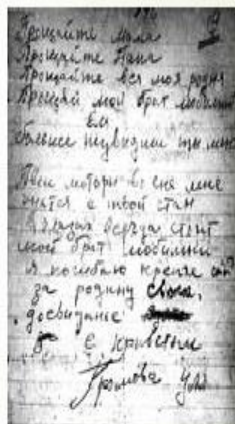 Прощайте мама
Прощайте Папа
Прощайте вся моя родня
Прощай мой брат любимый
Ел
больше неувидиш ты меня
Твои моторы во сне мне
снятся твой стан
в глазах всегда стоит
мой брат любимий
я погибаю крепче
за родину свою,
досвиданье
с приветом
Громова Уля